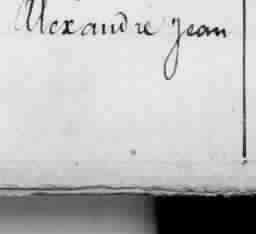 Alexandre Jean